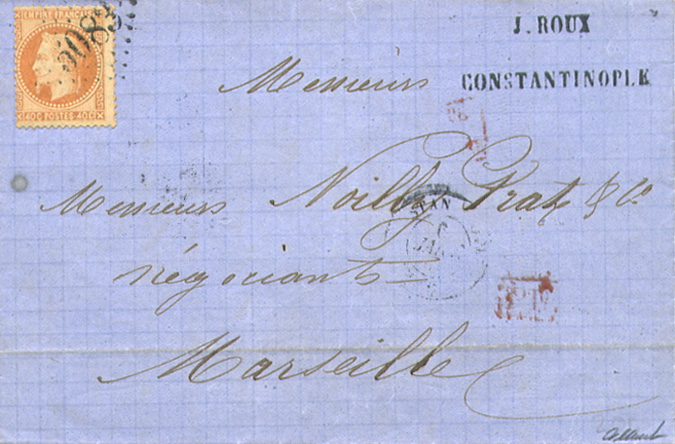 EMPIRE FRANÇAIS
5083
40C POSTES 40C
J. ROUX
CONSTANTINOPLE
Messieurs
Messieurs Noilly Prat & Co
négociants
Marseille